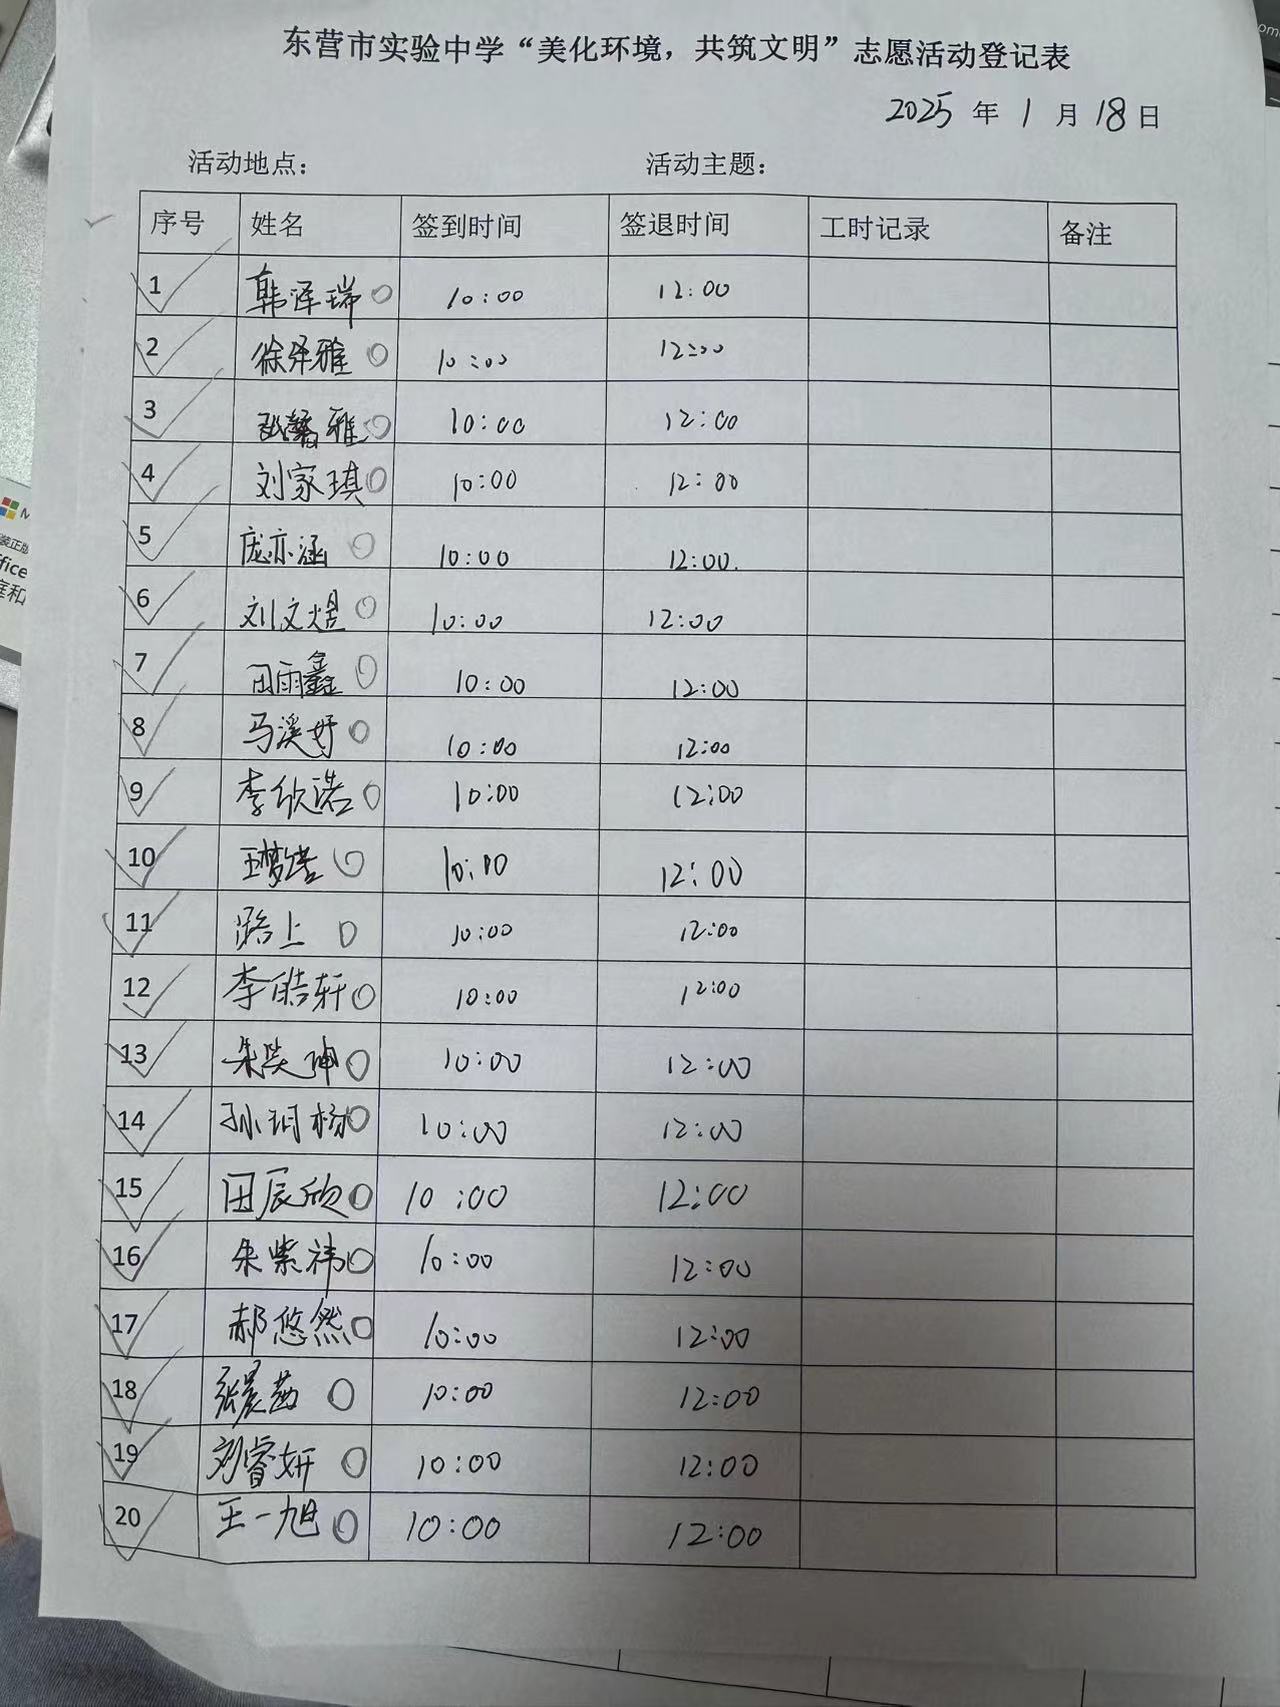 东营市实验中学“美化环境，共筑文明”志愿活动登记表
2025 年 1 月 18 日
活动地点： 活动主题：
序号 姓名 签到时间 签退时间 工时记录 备注
1 韩泽瑞 10:00 12:00
2 徐泽雅 10:00 12:00
3 张馨雅 10:00 12:00
4 刘家琪 10:00 12:00
5 庞亦涵 10:00 12:00.
6 刘文煜 10:00 12:00
7 田雨鑫 10:00 12:00
8 马溪妤 10:00 12:00
9 李欣诺 10:00 12:00
10 10:00 12:00
11 10:00 12:00
12 李皓轩 10:00 12:00
13 10:00 12:00
14 10:00 12:00
15 田辰欣 10:00 12:00
16 朱紫祎 10:00 12:00
17 郝悠然 10:00 12:00
18 张晨茜 10:00 12:00
19 刘睿妍 10:00 12:00
20 王一旭 10:00 12:00